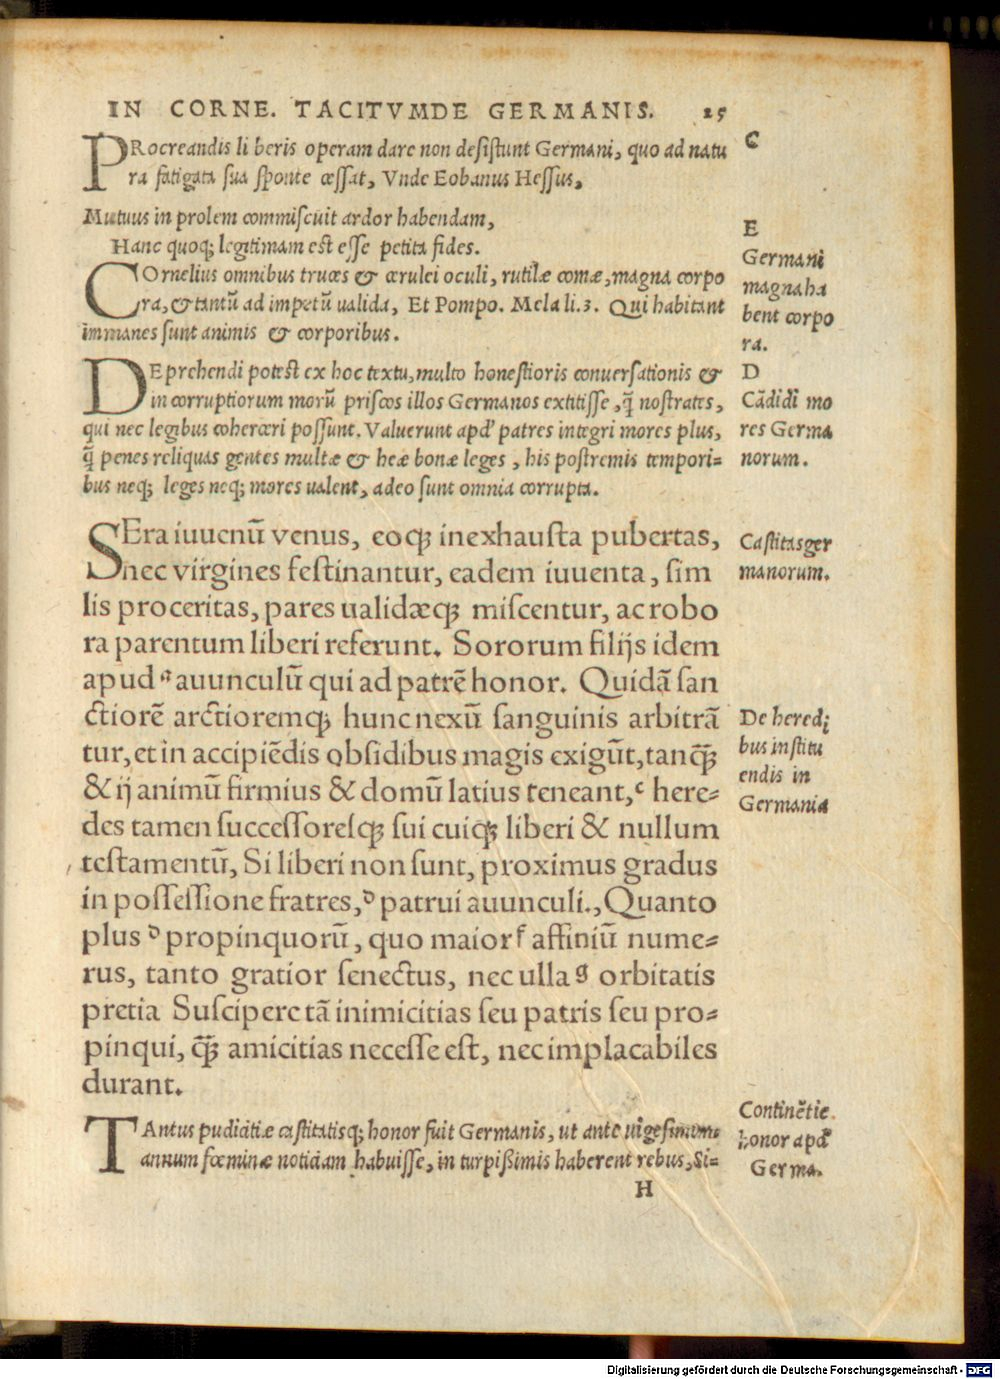 IN CORNE. TACITVMDE GERMANIS. 25
PRocreandis li beris operam dare non desistunt Germani, quo ad natu
ra fatigata sua sponte cessat, Vnde Eobanus Hessus,
C
Mutuus in prolem commiscuit ardor habendam,
Hanc quoq; legitimam est esse petita fides.
COrnelius omnibus truces & cerulei oculi, rutilæ comæ, magna corpo
ra, & tantũ ad impetũ ualida, Et Pompo. Mela li.3. Qui habitant
immanes sunt animis & corporibus.
E
Germani
magna ha
bent corpo
ra.
DEprehendi potest ex hoc textu, multo honestioris conuersationis &
in corruptiorum morũ priscos illos Germanos extitisse, q̃ nostrates,
qui nec legibus coherceri possunt. Valuerunt apđ patres integri mores plus,
q̃ penes reliquas gentes multæ & heæ bonæ leges, his postremis tempori=
bus neq; leges neq; mores ualent, adeo sunt omnia corrupta.
D
Cãdidi mo
res Germa
norum.
SEra iuuenũ venus, eoq; inexhausta pubertas,
nec virgines festinantur, eadem iuuenta, sim
lis proceritas, pares ualidæq; miscentur, ac robo
ra parentum liberi referunt. Sororum filijs idem
apud a auunculũ qui ad patrẽ honor. Quidã san
ctiorẽ arctioremq; hunc nexũ sanguinis arbitrã
tur, et in accipiẽdis obsidibus magis exigũt, tanq̃
& ij animũ firmius & domũ latius teneant, c here=
des tamen successoresq; sui cuiq; liberi & nullum
testamentũ, Si liberi non sunt, proximus gradus
in possessione fratres, D patrui auunculi., Quanto
plus D propinquorũ, quo maior f affiniũ nume=
rus, tanto gratior senectus, nec ulla g orbitatis
pretia Suscipere tã inimicitias seu patris seu pro=
pinqui, q̃ amicitias necesse est, nec implacabiles
durant.
Castitas ger
manorum.
De heredi
bus institu
endis in
Germania
TAntus pudicitiæ castitatisq; honor fuit Germanis, ut ante uigesimum
annum fœminæ noticiam habuisse, in turpißimis haberent rebus, Si=
Continẽtie
honor apđ
Germa.
H
Digitalisierung gefördert durch die Deutsche Forschungsgemeinschaft - DFG